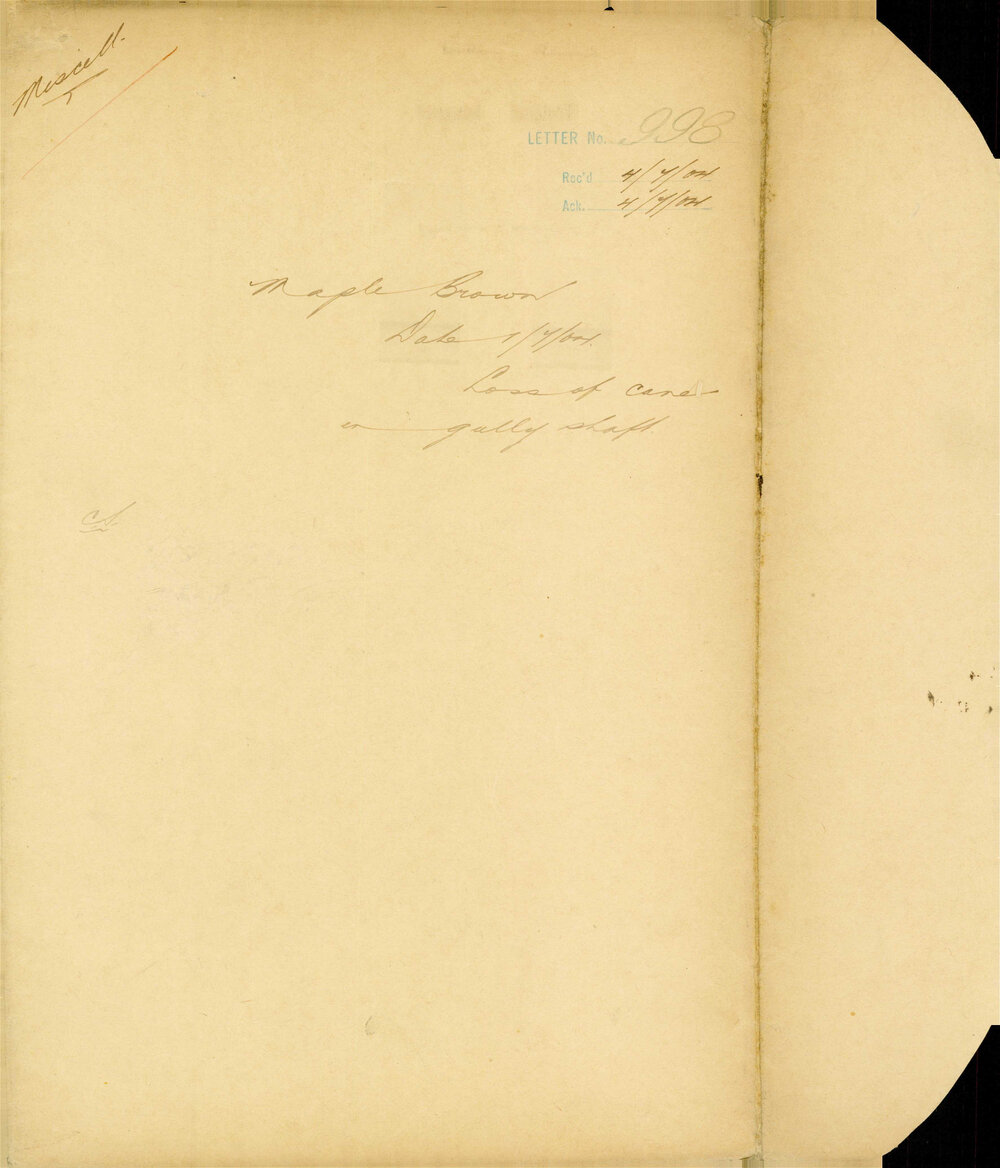 Miscell.
LETTER No. 998
Rec'd 4/7/04
Ack. 4/7/04
Maple Brown
Date 1/7/04.
Loss of cane
in gully shaft.